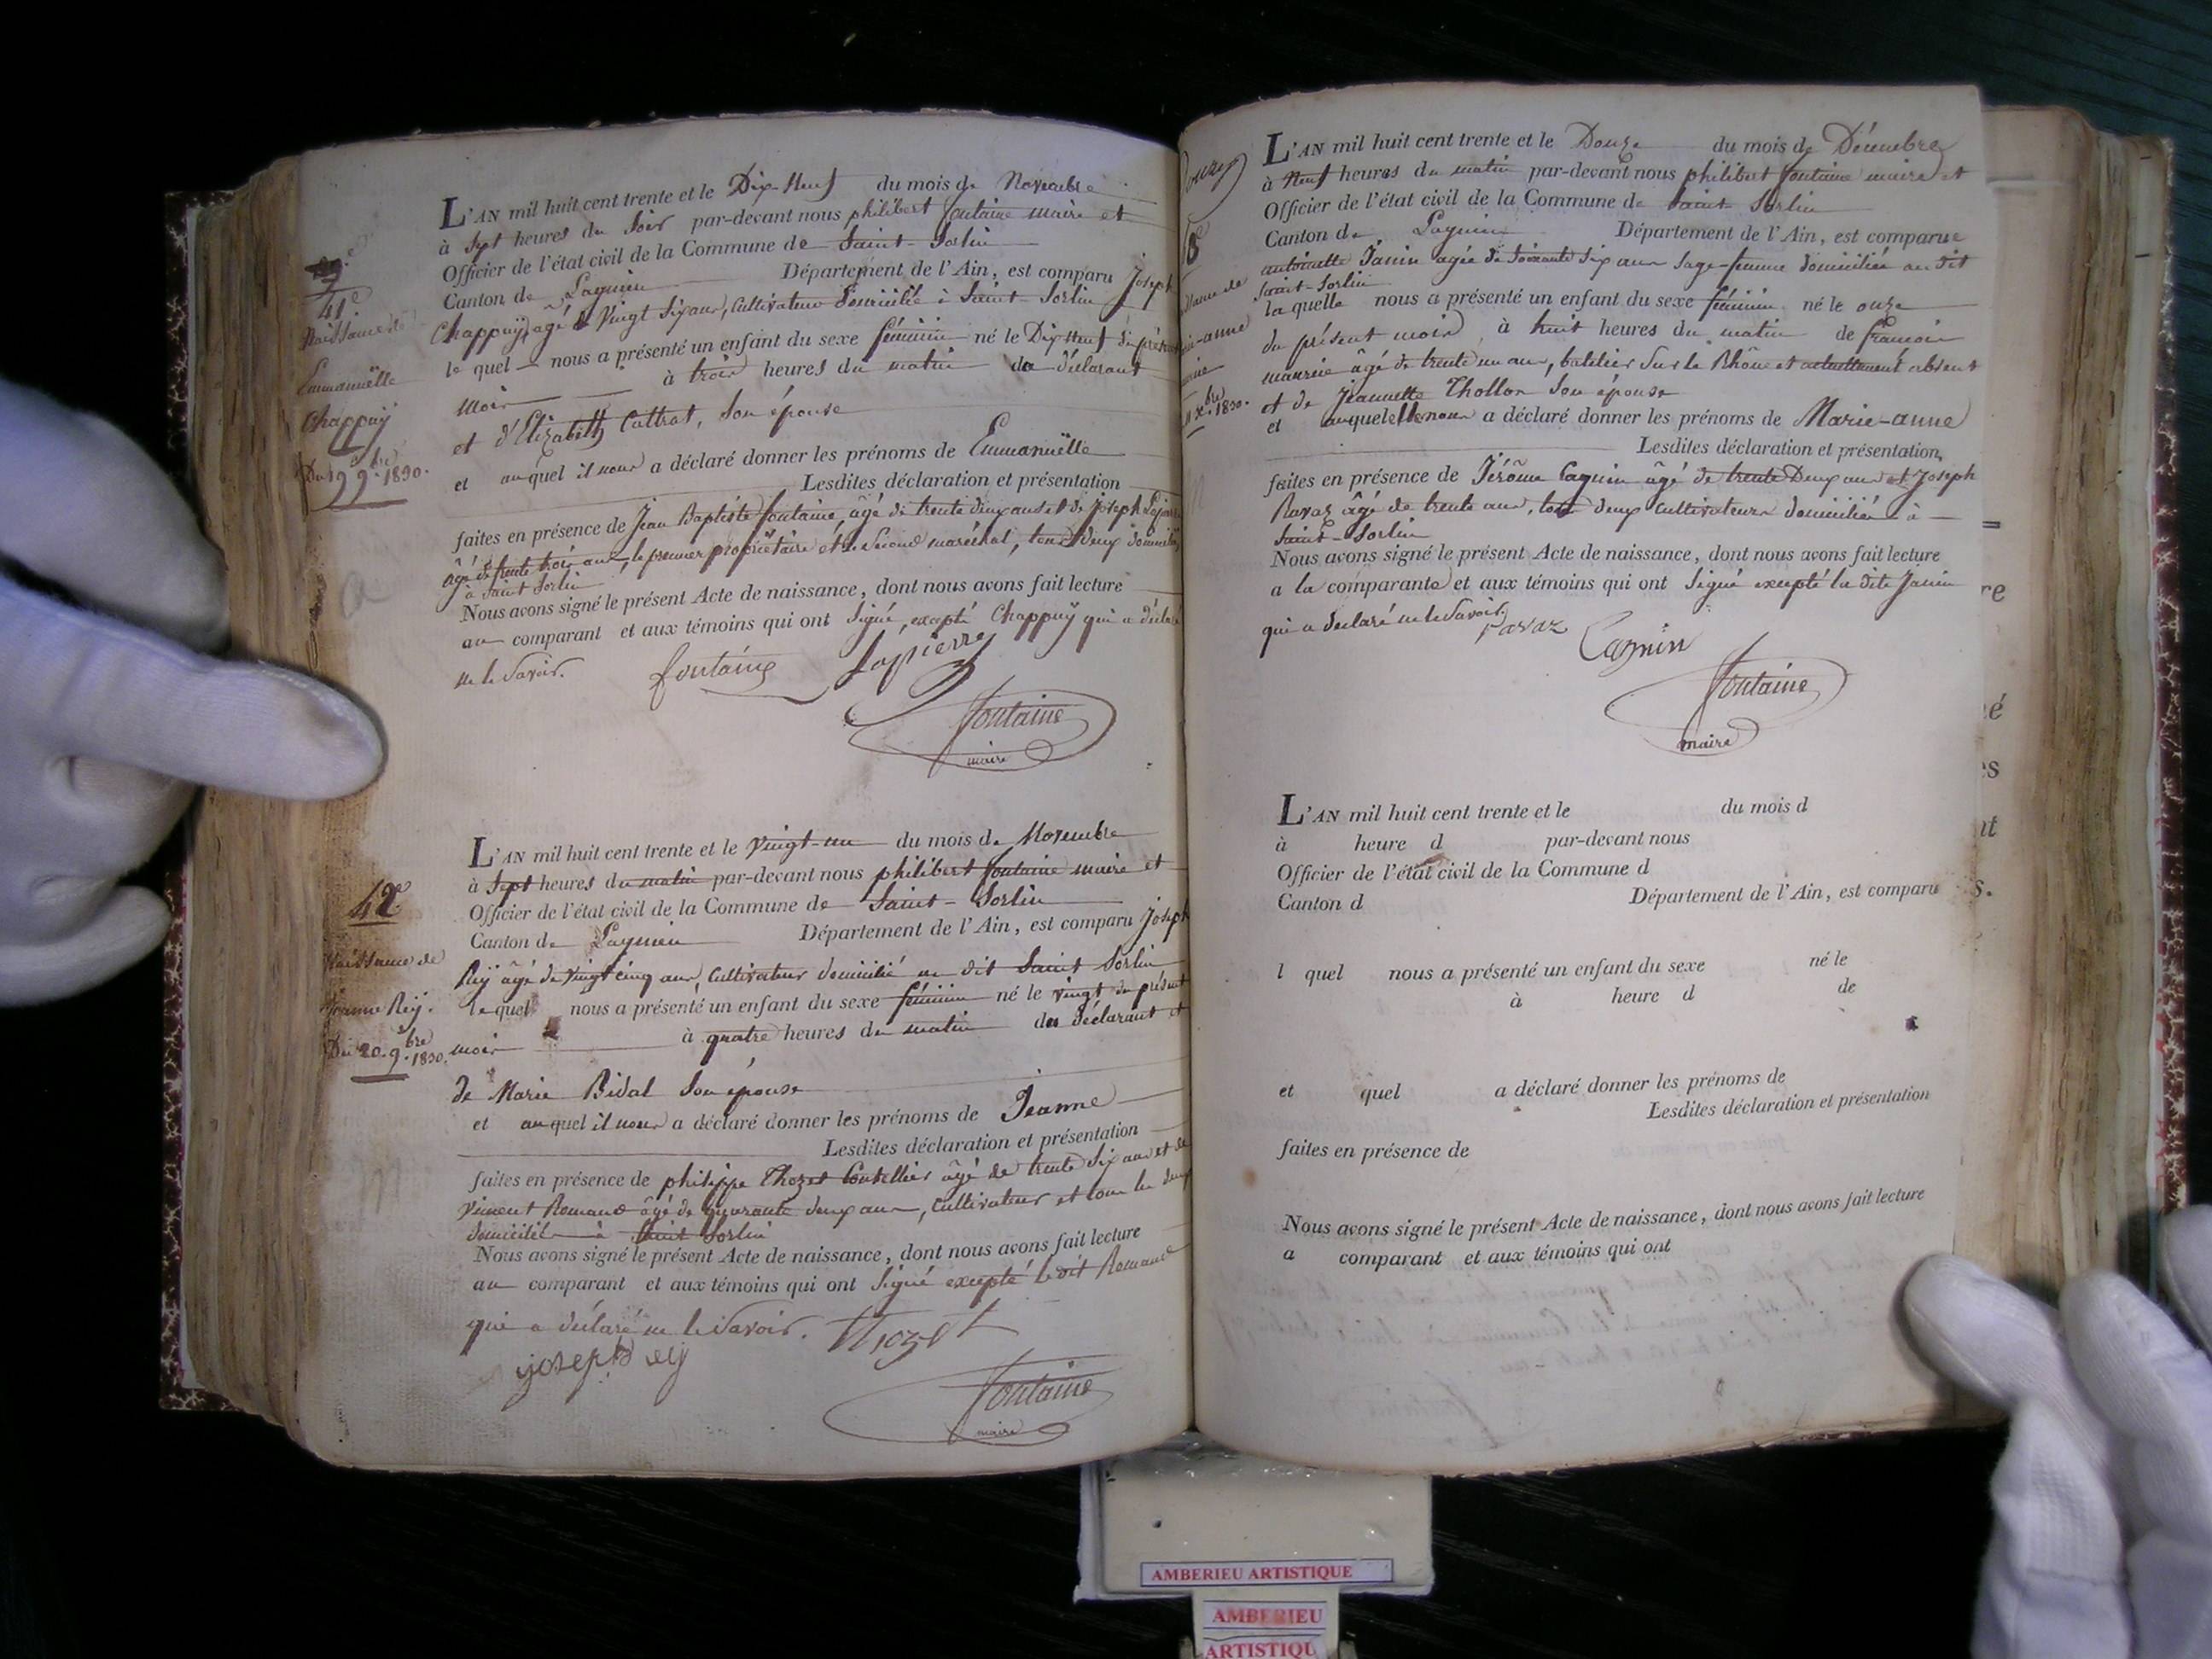 L'AN mil huit cent trente et le Dix-Neuf du mois de Novembre
à Sept heures du Soir par-devant nous philibert fontaine maire et
Officier de l'état civil de la Commune de Saint-Sorlin
Canton de Lagnieu Département de l'Ain, est comparu Joseph
Chappuÿ, agé de Vingt Six ans, Cultivateur domicilié à Saint-Sorlin
le quel nous a présenté un enfant du sexe féminin né le Dix Neuf du présent
mois à trois heures du matin du déclarant
et d'Elizabeth Cattrat, Son épouse
et auquel il nous a déclaré donner les prénoms de Emmanuëlle
Lesdites déclaration et présentation
faites en présence de Jean Baptiste fontaine, âgé de trente deux ans et de joseph
âgé de trente trois ans, le premier propriétaire et le Second maréchal, tous deux domiciliés
à Saint Sorlin
Nous avons signé le présent Acte de naissance, dont nous avons fait lecture
au comparant et aux témoins qui ont Signé, excepté Chappuÿ qui a déclaré
ne le Savoir.
fontaine Lapierre
fontaine
maire
41e
Naissance de
Emmanuëlle
Chappuÿ
Du 19 9bre 1830.
L'AN mil huit cent trente et le Vingt-un du mois de Novembre
à Sept heures du matin par-devant nous philibert fontaine maire et
Officier de l'état civil de la Commune de Saint-Sorlin
Canton de Lagnieu Département de l'Ain, est comparu Joseph
Reÿ âgé de vingt cinq ans, Cultivateur domicilié au dit Saint Sorlin
le quel nous a présenté un enfant du sexe féminin né le vingt du présent
mois à quatre heures du matin du déclarant et
de Marie Bidal Son épouse
et auquel il nous a déclaré donner les prénoms de Jeanne
Lesdites déclaration et présentation
faites en présence de philippe Thozet Coutellier âgé de trente Six ans et de
Vincent Romand âgé de quarante deux ans, Cultivateur et tous les deux
domiciliés à Saint Sorlin
Nous avons signé le présent Acte de naissance, dont nous avons fait lecture
au comparant et aux témoins qui ont Signé excepté le dit Romand
qui a déclaré ne le Savoir. Thozet
joseph reÿ
fontaine
maire
42e
Naissance de
Jeanne Reÿ.
Du 20. 9bre 1830.
L'AN mil huit cent trente et le Douze du mois de Décembre
à Neuf heures du matin par-devant nous philibert fontaine maire et
Officier de l'état civil de la Commune de Saint-Sorlin
Canton de Lagnieu Département de l'Ain, est comparue
antoinette Janin agée de Soixante Six ans Sage-femme domiciliée au dit
Saint-Sorlin
la quelle nous a présenté un enfant du sexe féminin né le onze
du présent mois à huit heures du matin de françois
maurin âgé de trente un ans, batelier Sur le Rhône et actuellement absent
et de Jeannette Thollon Son épouse
et auquel elle nous a déclaré donner les prénoms de Marie-anne
Lesdites déclaration et présentation,
faites en présence de Jérôme Cagnin âgé de trente Deux ans et Joseph
Ravaz âgé de trente ans, tous deux Cultivateurs domiciliés à
Saint-Sorlin
Nous avons signé le présent Acte de naissance, dont nous avons fait lecture
a la comparante et aux témoins qui ont Signé excepté la dite Janin
qui a déclaré ne le Savoir.
ravaz Cagnin
fontaine
maire
L'AN mil huit cent trente et le du mois d
à heure d par-devant nous
Officier de l'état civil de la Commune d
Canton d Département de l'Ain, est comparu
l quel nous a présenté un enfant du sexe né le
à heure d de
et quel a déclaré donner les prénoms de
Lesdites déclaration et présentation
faites en présence de
Nous avons signé le présent Acte de naissance, dont nous avons fait lecture
a comparant et aux témoins qui ont
AMBERIEU ARTISTIQUE
AMBERIEU
ARTISTIQU